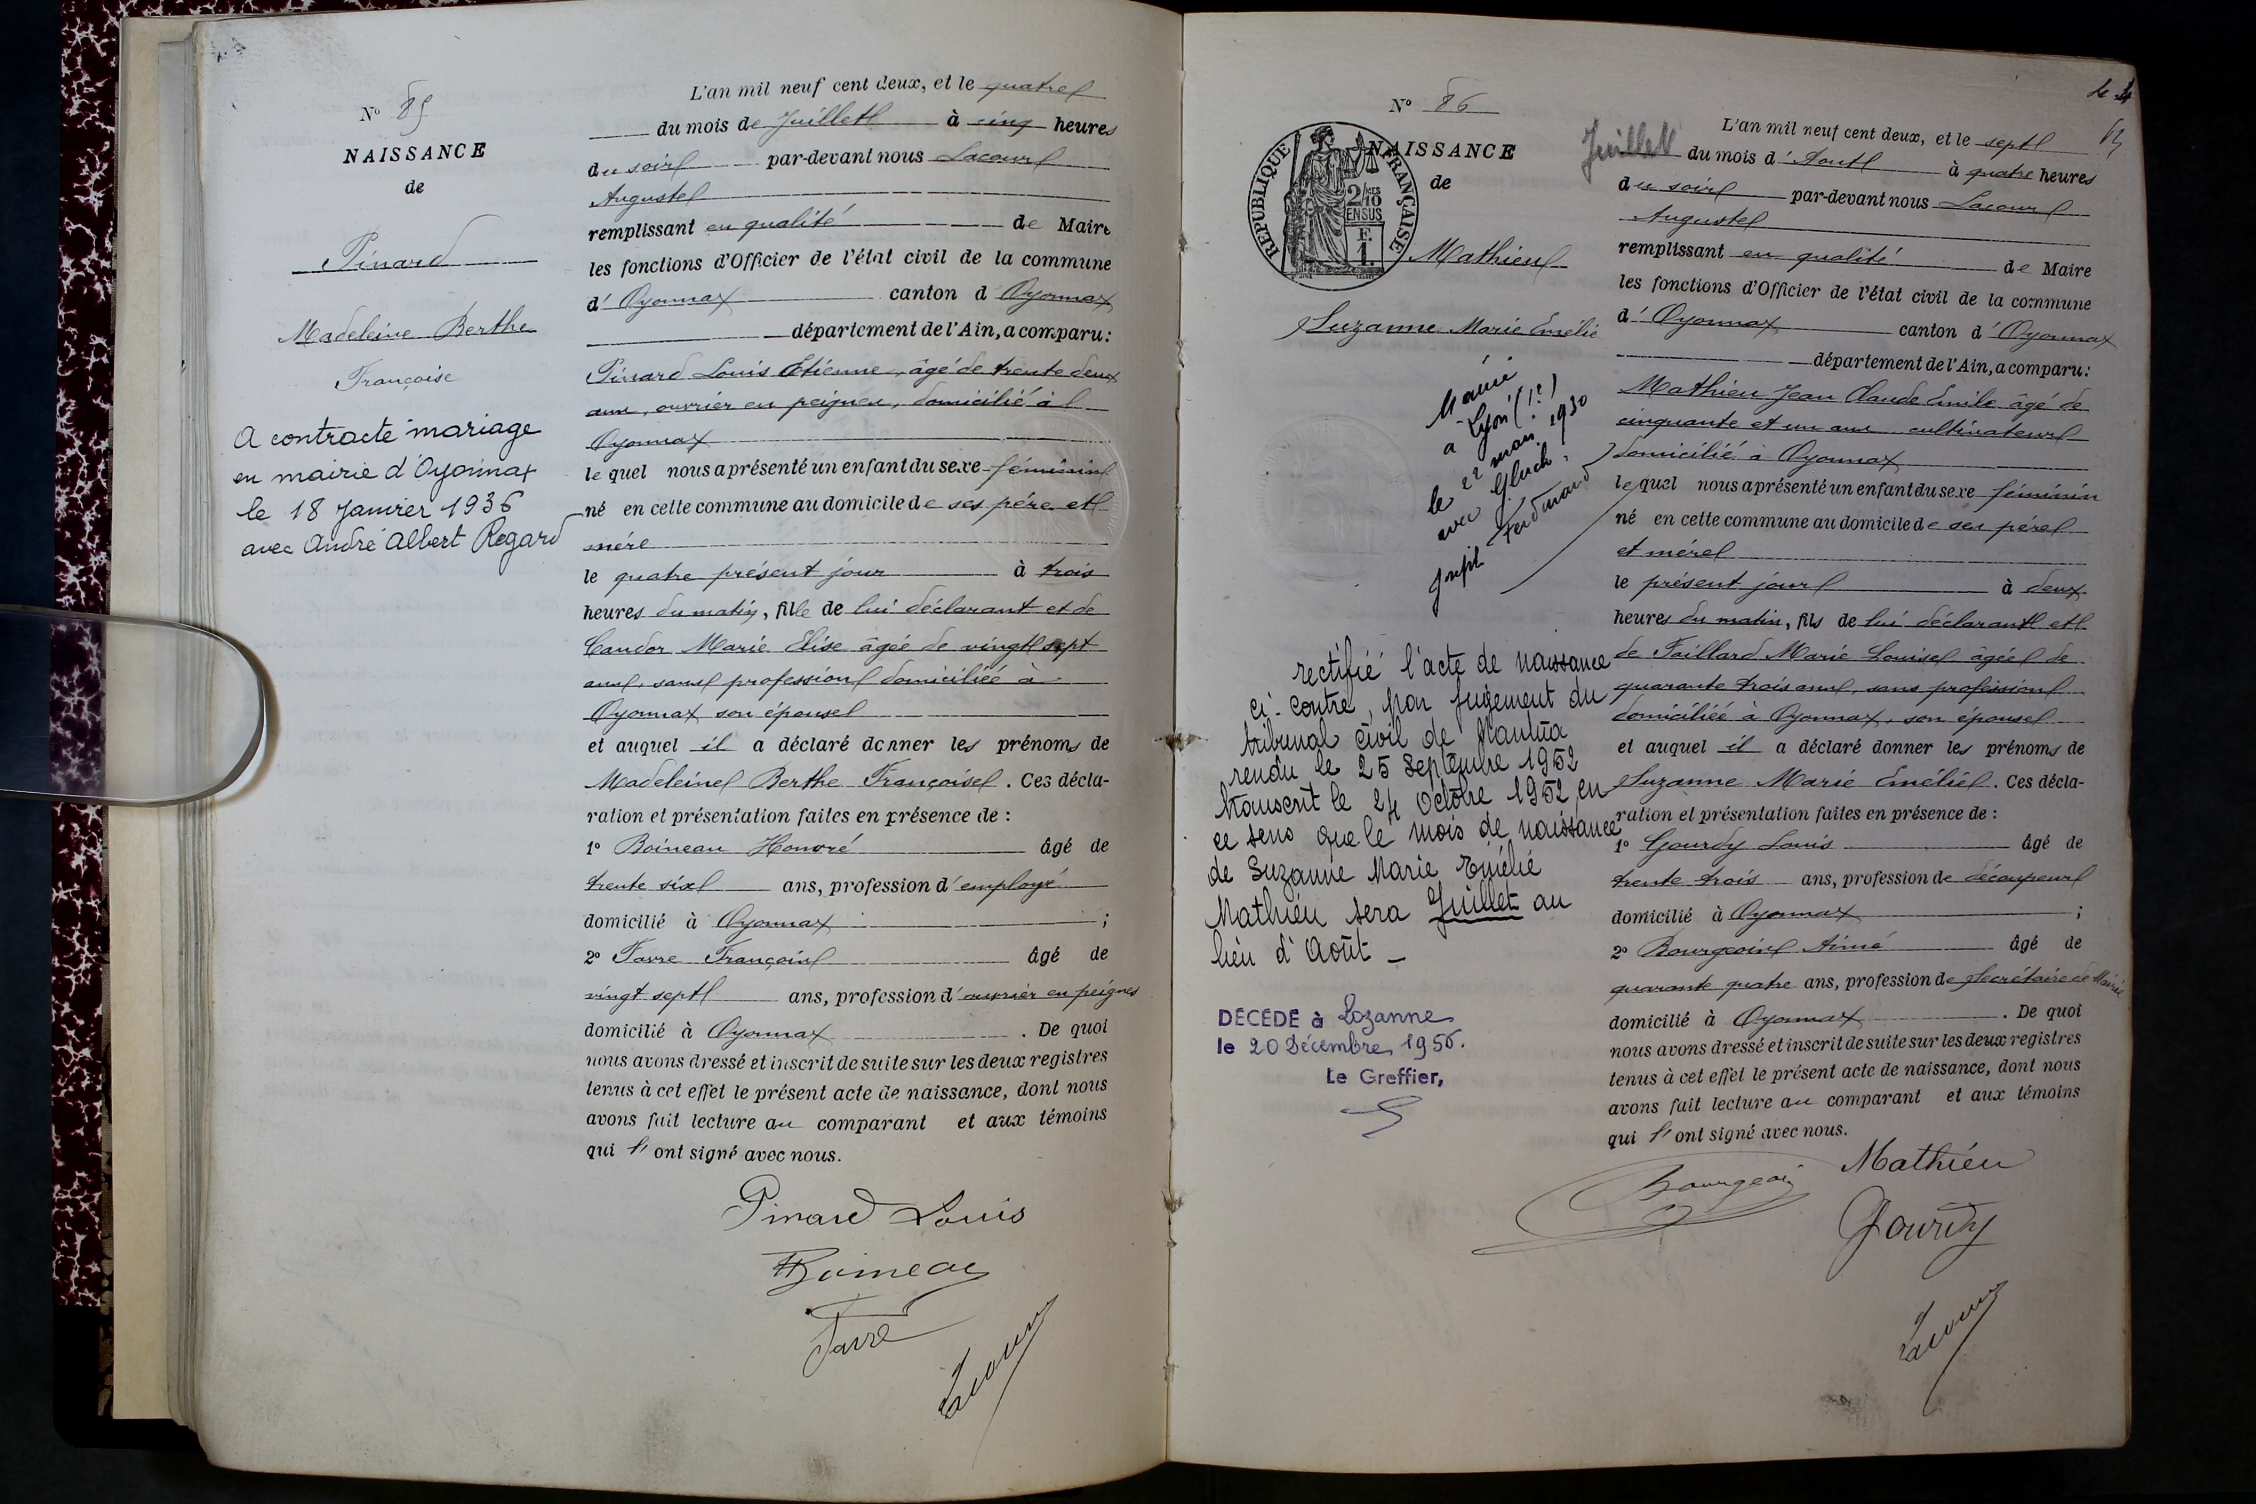 Nº 85
NAISSANCE
de
Pinard
Madeleine Berthe
Françoise
A contracté mariage
en mairie d'Oyonnax
le 18 Janvier 1936
avec André Albert Regard
L'an mil neuf cent deux, et le quatre
du mois de Juillet à cinq heures
du soir par-devant nous Lacour
Auguste
remplissant en qualité de Maire
les fonctions d'Officier de l'état civil de la commune
d' Oyonnax canton d' Oyonnax
département de l'Ain, a comparu:
Pinard Louis Etienne, âgé de trente deux
ans, ouvrier en peignes, domicilié à
Oyonnax
le quel nous a présenté un enfant du sexe féminin
né en cette commune au domicile de ses père et
mère
le quatre présent jour à trois
heures du matin, fille de lui déclarant et de
Candor Marie Elise âgée de vingt sept
ans, sans profession domiciliée à
Oyonnax son épouse
et auquel il a déclaré donner les prénoms de
Madeleine Berthe Françoise. Ces décla-
ration et présentation faites en présence de :
1º Boineau Honoré âgé de
trente six ans, profession d'employé
domicilié à Oyonnax ;
2º Favre François âgé de
vingt sept ans, profession d'ouvrier en peignes
domicilié à Oyonnax . De quoi
nous avons dressé et inscrit de suite sur les deux registres
tenus à cet effet le présent acte de naissance, dont nous
avons fait lecture au comparant et aux témoins
qui l'ont signé avec nous.
Pinard Louis
Boineau
Favre
Lacour
Nº 86
NAISSANCE
de
REPUBLIQUE FRANÇAISE
2/10 EN SUS
F.
1.
Mathieu
Suzanne Marie Emélie
Mariée
à Lyon (1e)
le 22 mars 1930
avec Gluck,
Joseph Ferdinand
rectifié l'acte de naissance
ci-contre, par jugement du
tribunal civil de Nantua
rendu le 25 Septembre 1952
transcrit le 24 Octobre 1952 en
ce sens que le mois de naissance
de Suzanne Marie Emélie
Mathieu sera Juillet au
lieu d'Août -
DÉCÉDÉ à Lozanne
le 20 Décembre 1956.
Le Greffier,
L'an mil neuf cent deux, et le sept
Juillet du mois d'Aout à quatre heures
du soir par-devant nous Lacour
Auguste
remplissant en qualité de Maire
les fonctions d'Officier de l'état civil de la commune
d' Oyonnax canton d' Oyonnax
département de l'Ain, a comparu:
Mathieu Jean Claude Emile âgé de
cinquante et un ans cultivateur
domicilié à Oyonnax
le quel nous a présenté un enfant du sexe féminin
né en cette commune au domicile de ses père
et mère
le présent jour à deux
heures du matin, fils de lui déclarant et
de Taillard Marie Louise âgée de
quarante trois ans, sans profession
domiciliée à Oyonnax, son épouse
et auquel il a déclaré donner les prénoms de
Suzanne Marie Emélie. Ces décla-
ration et présentation faites en présence de :
1º Gourdy Louis âgé de
trente trois ans, profession de découpeur
domicilié à Oyonnax ;
2º Bourgeois Aimé âgé de
quarante quatre ans, profession de Secrétaire de Mairie
domicilié à Oyonnax . De quoi
nous avons dressé et inscrit de suite sur les deux registres
tenus à cet effet le présent acte de naissance, dont nous
avons fait lecture au comparant et aux témoins
qui l'ont signé avec nous.
Bourgeois Mathieu
Gourdy
Lacour